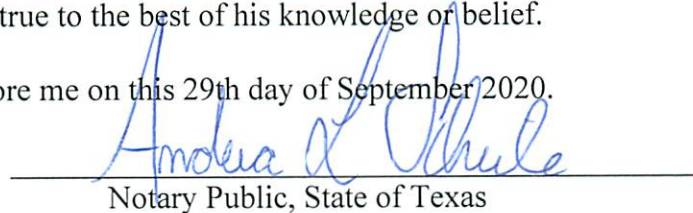 true to the best of his knowledge or belief.
ore me on this 29th day of September 2020.
Andrea L
Notary Public, State of Texas